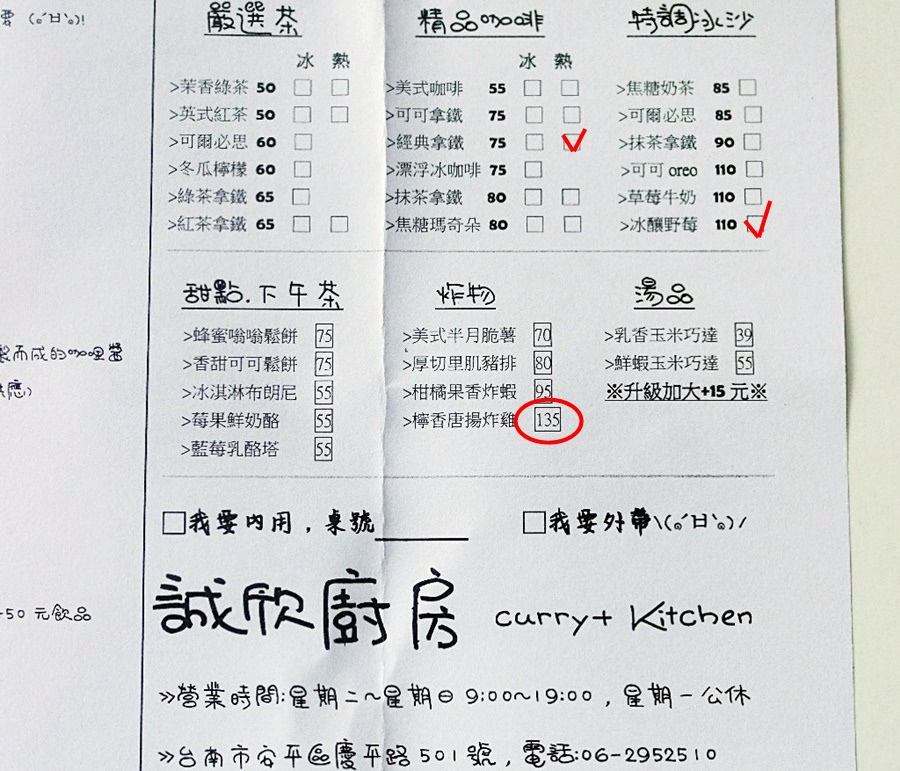 要 (๑´ㅂ`๑)!
嚴選茶
冰 熱
>茉香綠茶 50 □ □
>英式紅茶 50 □ □
>可爾必思 60 □
>冬瓜檸檬 60 □
>綠茶拿鐵 65 □
>紅茶拿鐵 65 □ □
精品咖啡
冰 熱
>美式咖啡 55 □ □
>可可拿鐵 75 □ □
>經典拿鐵 75 □ ☑
>漂浮冰咖啡 75 □
>抹茶拿鐵 80 □ □
>焦糖瑪奇朵 80 □ □
特調冰沙
>焦糖奶茶 85 □
>可爾必思 85 □
>抹茶拿鐵 90 □
>可可 oreo 110 □
>草莓牛奶 110 □
>冰釀野莓 110 ☑
甜點.下午茶
>蜂蜜嗡嗡鬆餅 75
>香甜可可鬆餅 75
>冰淇淋布朗尼 55
>莓果鮮奶酪 55
>藍莓乳酪塔 55
炸物
>美式半月脆薯 70
>厚切里肌豬排 80
>柑橘果香炸蝦 95
>檸香唐揚炸雞 135
湯品
>乳香玉米巧達 39
>鮮蝦玉米巧達 55
※升級加大+15 元※
而成的咖哩醬
應)
50 元飲品
□我要內用，桌號____
□我要外帶\(๑´ㅂ`๑)/
誠欣廚房 curry+ Kitchen
»營業時間:星期二~星期日 9:00~19:00，星期一公休
»台南市安平區慶平路 501 號，電話:06-2952510